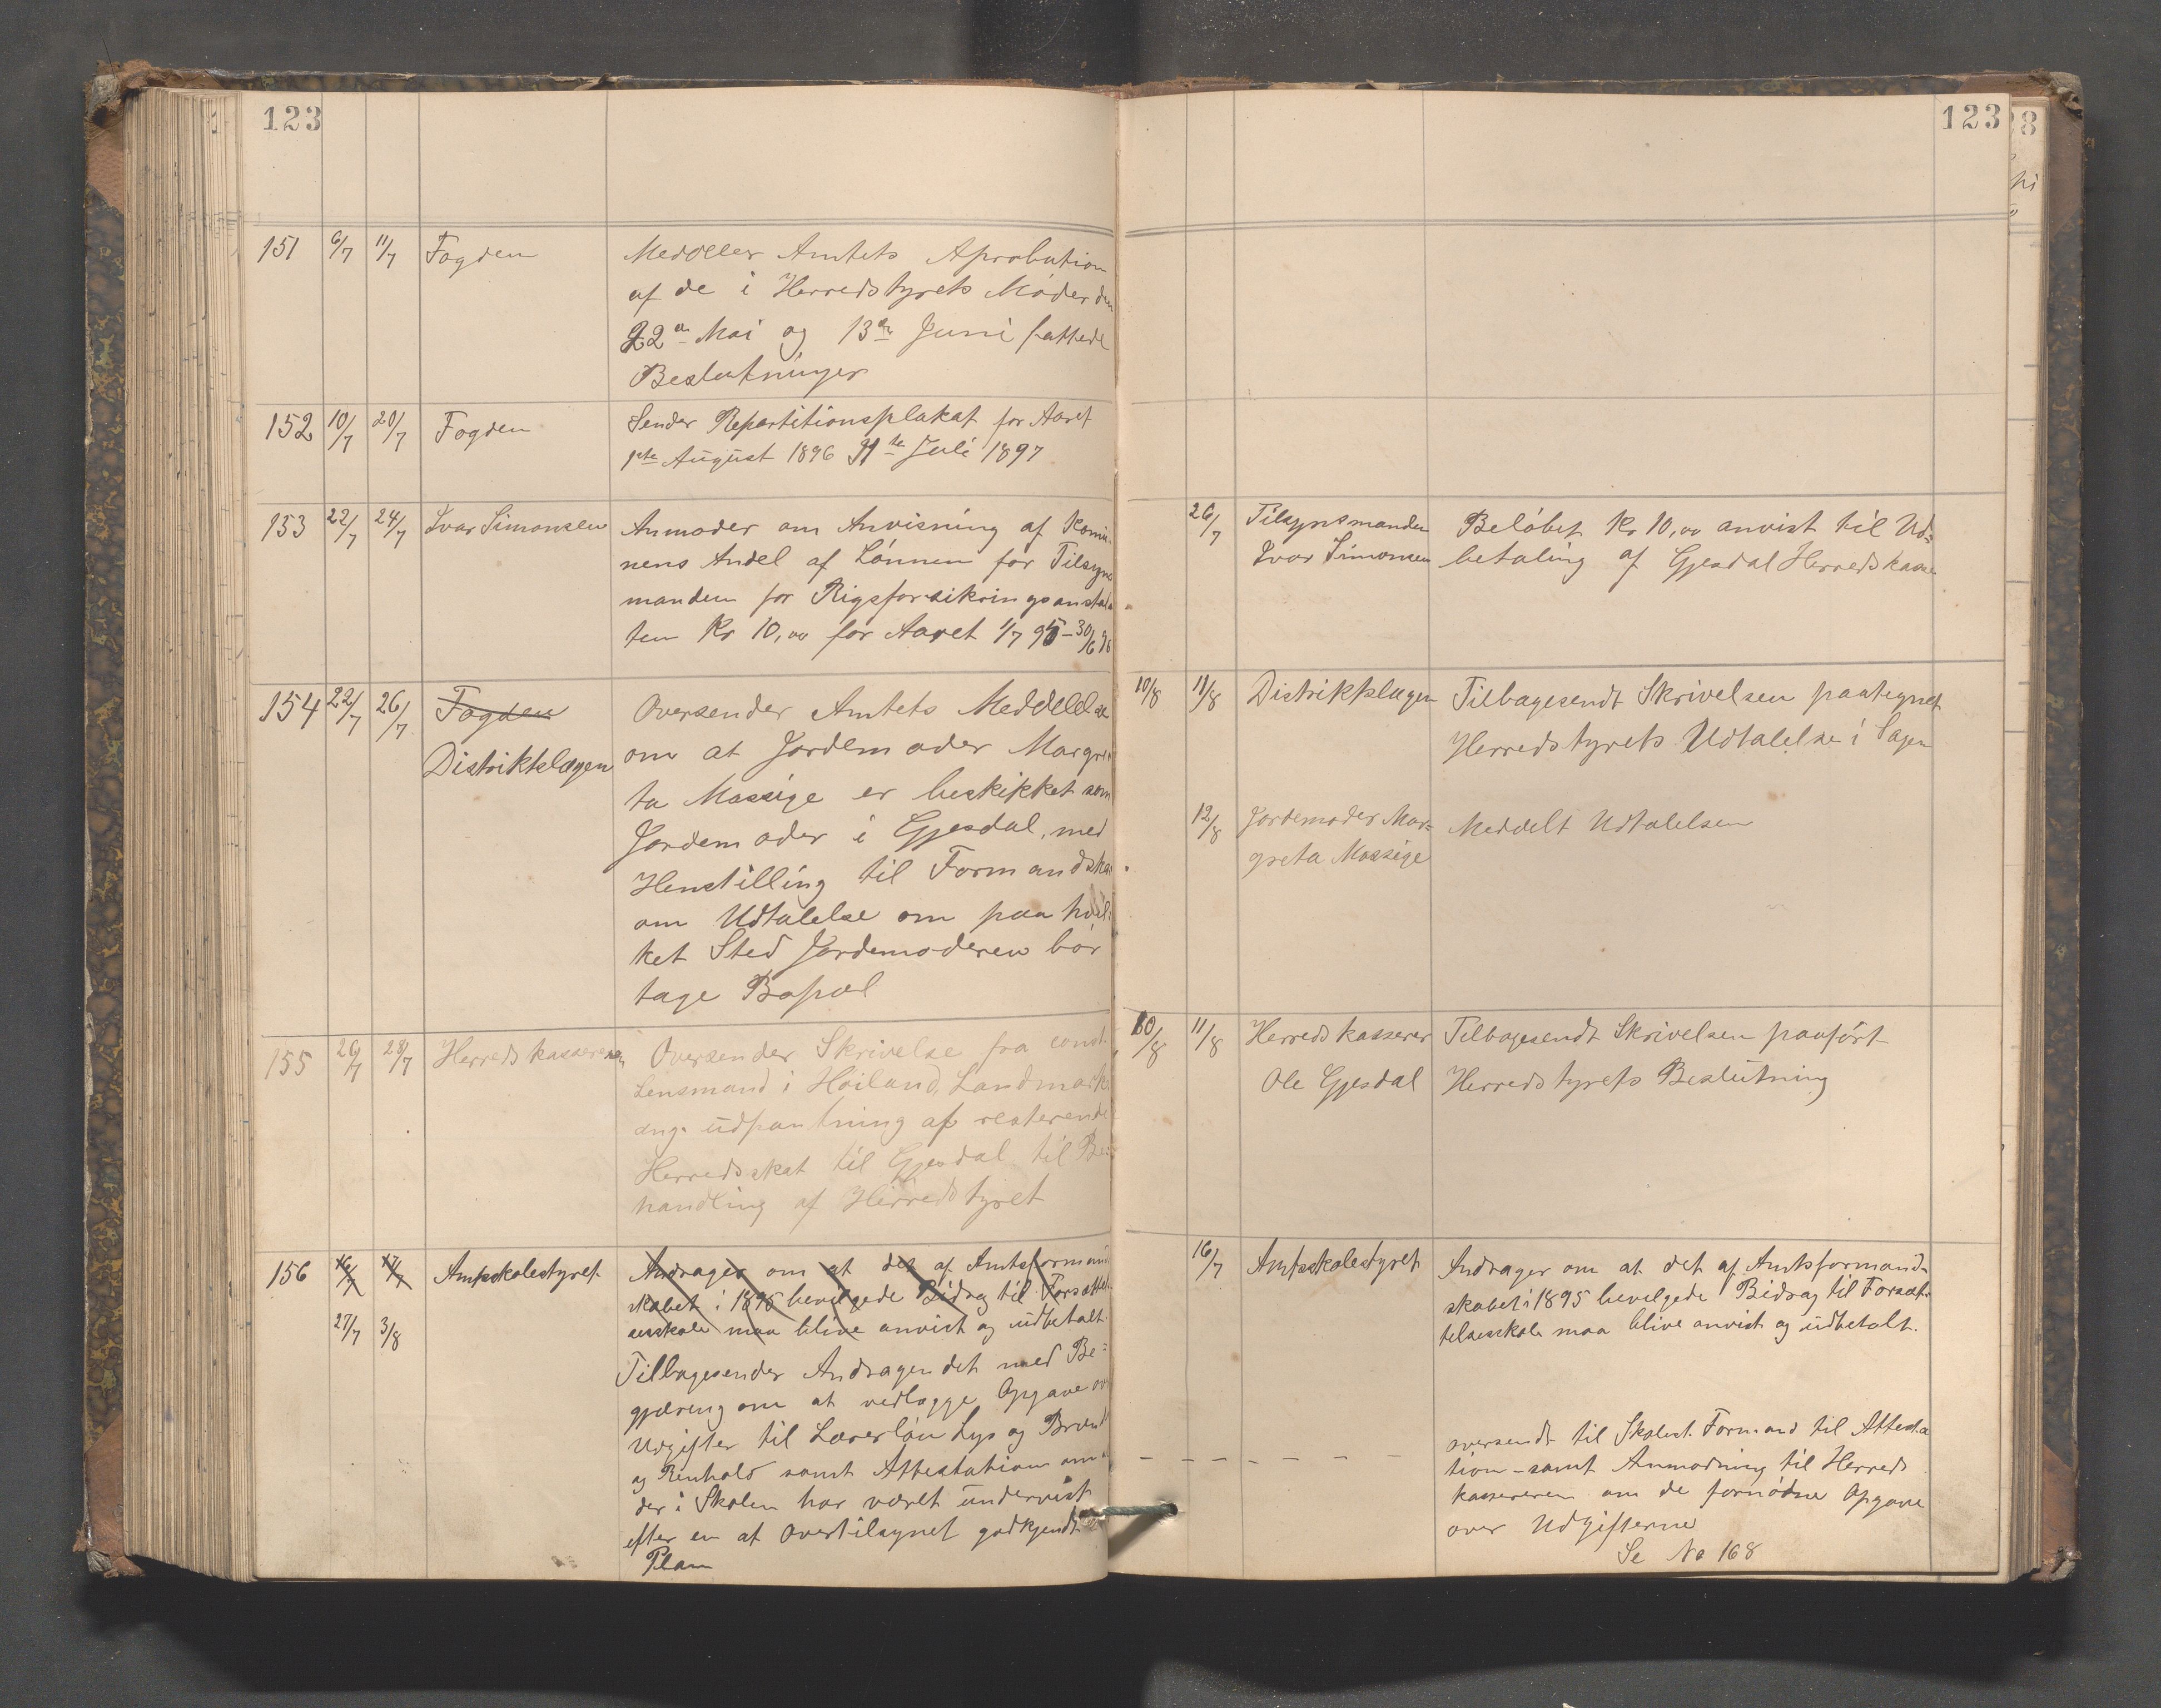 123
151 6/7 11/7 Fogden Meddeler Amtets Aprobation
af de i Herredstyrets Møder den
22de Mai og 13de Juni fattede
Beslutninger
152 10/7 20/7 Fogden Sender Repartitionsplakat for Aaret
1ste August 1896 31te Juli 1897
153 22/7 24/7 Ivar Simonsen Anmoder om Anvisning af Komu-
nens Andel af Lønnen for Tilsyns
manden for Rigsforsikringsanstal
ten Kr 10,00 for Aaret 1/7 95 – 30/6 96
154 22/7 26/7 Fogden Oversender Amtets Meddelelse
Distriktslægen om at Jordemoder Margre
ta Massige er beskikket som
Jordemoder i Gjesdal, med
Henstilling til Formandska
om Udtalelse om paa hvil-
ket Sted Jordemoderen bør
tage Bopæl
155 26/7 28/7 Herredskassereren Oversender Skrivelse fra const.
Lensmand i Høiland, Landmark
ang. udpantning af resterende
Herredsskat til Gjesdal til Be-
handling af Herredstyret
156 16/7 17/7 Amtsskolestyret Andrager om at det af Amtsformand
skabet i 1895 bevilgede Bidrag til Forsættel
sesskole maa blive anvist og udbetalt.
27/7 3/8
Tilbagesender Andragendet med Be-
gjæreng om at vedlægge Opgave over
Udgifter til Lærerløn Lys og Brænd
og Renhold samt Attestation om
der i Skolen har været undervist
efter en af Overtilsynet godkjendt
Plan
123
26/7 Tilsynsmanden Beløbet Kr 10,00 anvist til Ud-
Ivar Simonsen betaling af Gjesdal Herredskasse
10/8 11/8 Distriktslægen Tilbagesendt Skrivelsen paategnet
Herredstyrets Udtalelse i Sagen
12/8 Jordemoder Mar- Meddelt Udtalelsen
greta Massige
10/8 11/8 Herredskasserer Tilbagesendt Skrivelsen paaført
Ole Gjesdal Herredstyrets Beslutning
16/7 Amtsskolestyret Andrager om at det af Amtsformand-
skabet i 1895 bevilgede Bidrag til Forsæt-
telsesskole maa blive anvist og udbetalt.
oversendt til Skolest. Formand til Attesta
tion – samt Anmodning til Herreds
kassereren om de fornødne Opgave
over Udgifterne
Se No 168